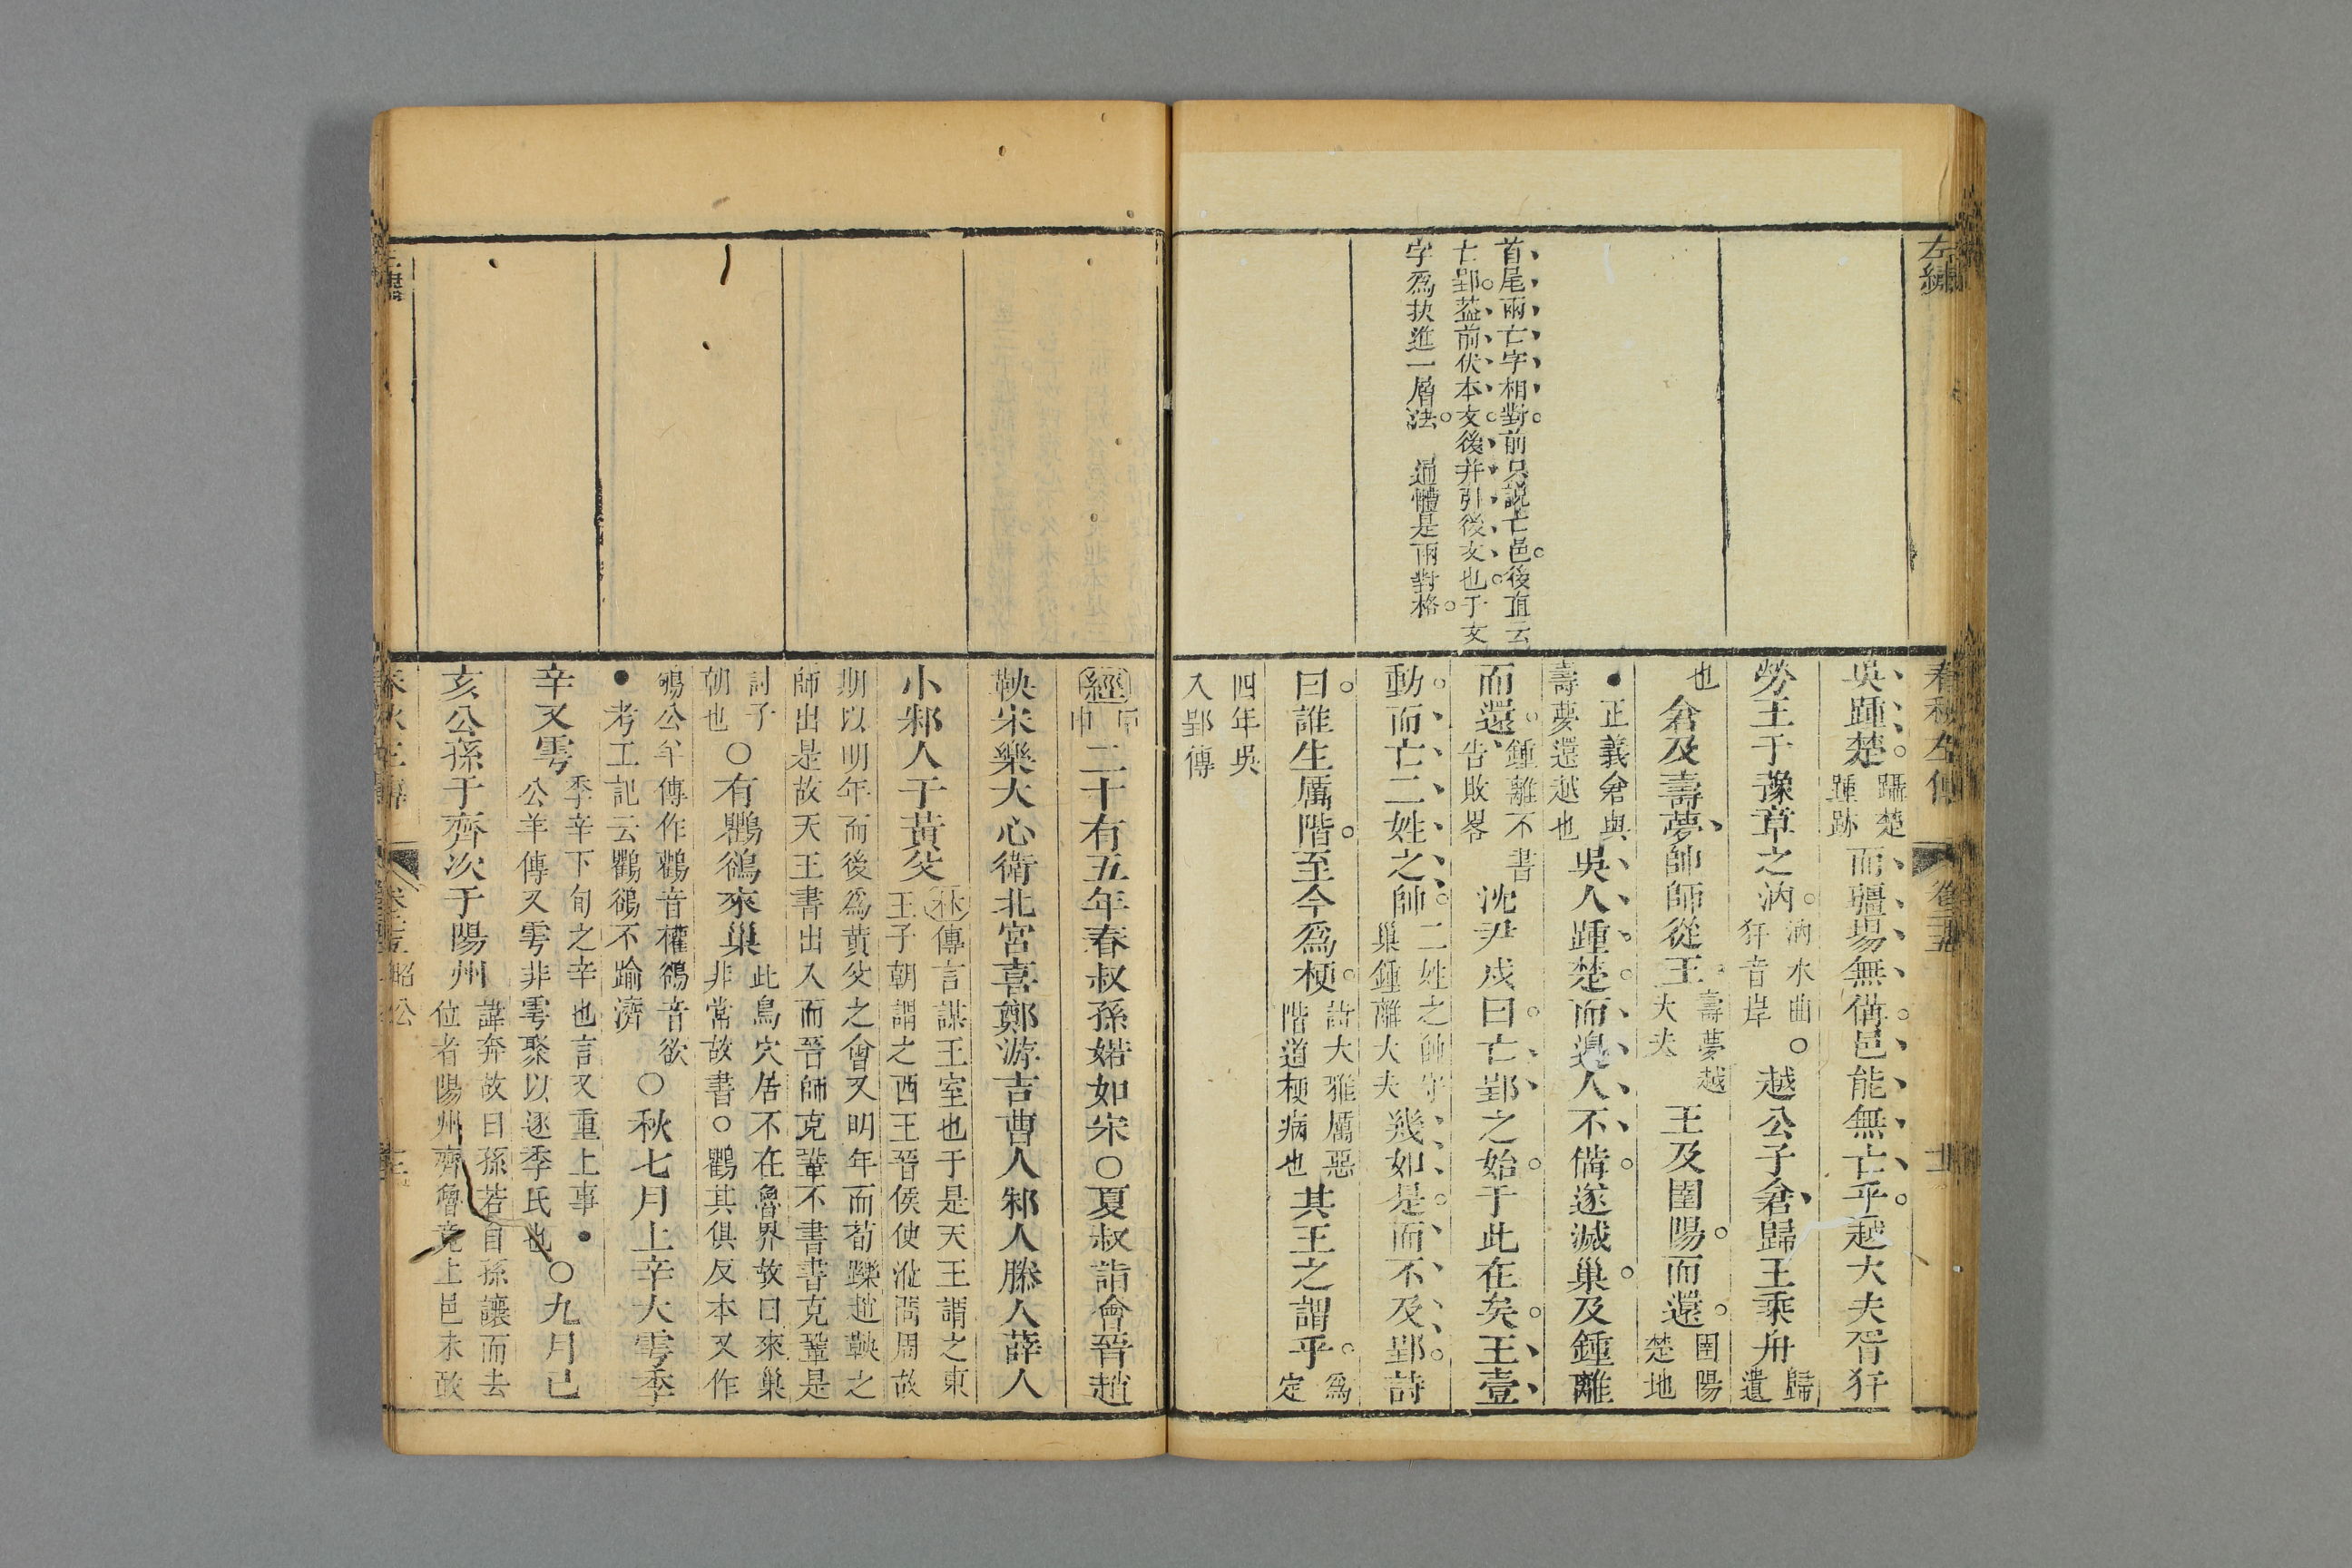 左繡
首尾兩亡字相對前只説亡邑後直云
亡郢葢前伏本文後并引後文也于文
字爲扙進一層法 通體是兩對格
春秋左傳 卷二十五
吳踵楚躡楚踵跡而疆埸無備邑能無亡乎越大夫胥犴
勞王于豫章之汭汭水曲犴音岸○越公子倉歸王乘舟歸遺
也倉及壽夢帥師從王壽夢越大夫王及圉陽而還圉陽楚地
●正義倉與壽夢還越也吳人踵楚而邊人不備遂滅巢及鍾離
而還鍾離不書告敗畧沈尹戌曰亡郢之始于此在矣王壹
動而亡二姓之帥二姓之帥守巢鍾離大夫幾如是而不及郢詩
曰誰生厲階至今爲梗詩大雅厲惡階道梗病也其王之謂乎爲定
四年吳入郢傳
經甲申二十有五年春叔孫婼如宋○夏叔詣會晉趙
鞅宋樂大心衛北宮喜鄭游吉曹人邾人滕人薛人
小邾人于黃父林傳言謀王室也于是天王謂之東王子朝謂之西王晉侯使涖問周故
期以明年而後爲黃父之會又明年而荀躒趙鞅之師出是故天王書出入而晉師克鞏不書書克鞏是
討子朝也○有鸜鵒來巢此鳥穴居不在魯界故曰來巢非常故書○鸜其俱反本又作
鴝公羊傳作鸛音權鵒音欲●考工記云鸜鵒不踰濟○秋七月上辛大雩季
辛又雩季辛下旬之辛也言又重上事●公羊傳又雩非雩聚以逐季氏也○九月己
亥公孫于齊次于陽州諱奔故曰孫若自孫讓而去位者陽州齊魯竟上邑未敢
昭公